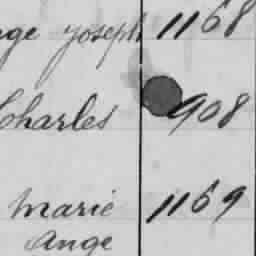 ge Joseph 1168
Charles 908
Marie 1169
Ange